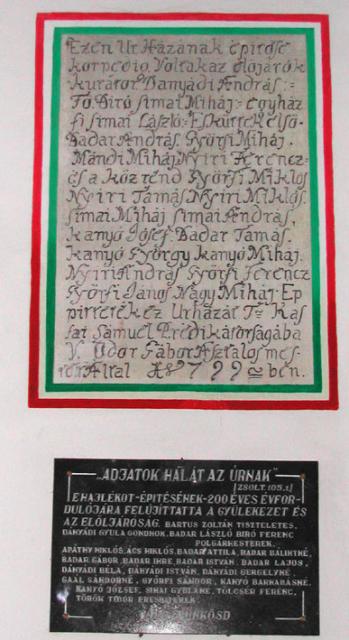 Ezen Ur Házának epitése
korpedig Voltak az elöjárók
kurátor Banyádi András:
Fö Biró simai Miháj: egyház
fi simai László: Esküttek elsö
Badar András, Györfi Miháj.
Mándi Miháj Nyiri Ferencz
és a köz rend Györfi Miklós
Nyiri Tamás, Nyiri Miklós.
simai Miháj simai András,
kanyó Josef. Badar Tamás.
kanyó György kanyó Miháj.
Nyiri András Györfi Ferencz
Györfi János Nagy Miháj Ep
pirretek ez Urházát Ts Kas
sai Samuel Prédikátorságába
V. Udor Fábor Asztalos mes
ter Által 1799 ben.
„ADJATOK HÁLÁT AZ ÚRNAK"
[ZSOLT. 105.1]
E HAJLÉKOT ÉPÍTÉSÉNEK 200 ÉVES ÉVFOR-
DULÓJÁRA FELÚJÍTTATTA A GYÜLEKEZET ÉS
AZ ELÖLJÁRÓSÁG. BARTUS ZOLTÁN TISZTELETES,
DÁNYÁDI GYULA GONDNOK, BADAR LÁSZLÓ BÍRÓ FERENC
POLGÁRMESTEREK,
APÁTHY MIKLÓS, ÁCS MIKLÓS, BADAR ATTILA, BADAR BÁLINTNÉ,
BADAR GÁBOR, BADAR IMRE, BADAR ISTVÁN, BADAR LAJOS,
DÁNYÁDI BÉLA, DÁNYÁDI ISTVÁN, DÁNYÁDI GERGELYNÉ,
GAÁL SÁNDORNÉ, GYÖRFI SÁNDOR, KANYÓ BARNABÁSNÉ,
KANYÓ JÓZSEF, SIMAI GYULÁNÉ, TÖLCSÉR FERENC,
TÖRÖK TIBOR PRESBITEREK.
PÜNKÖSD